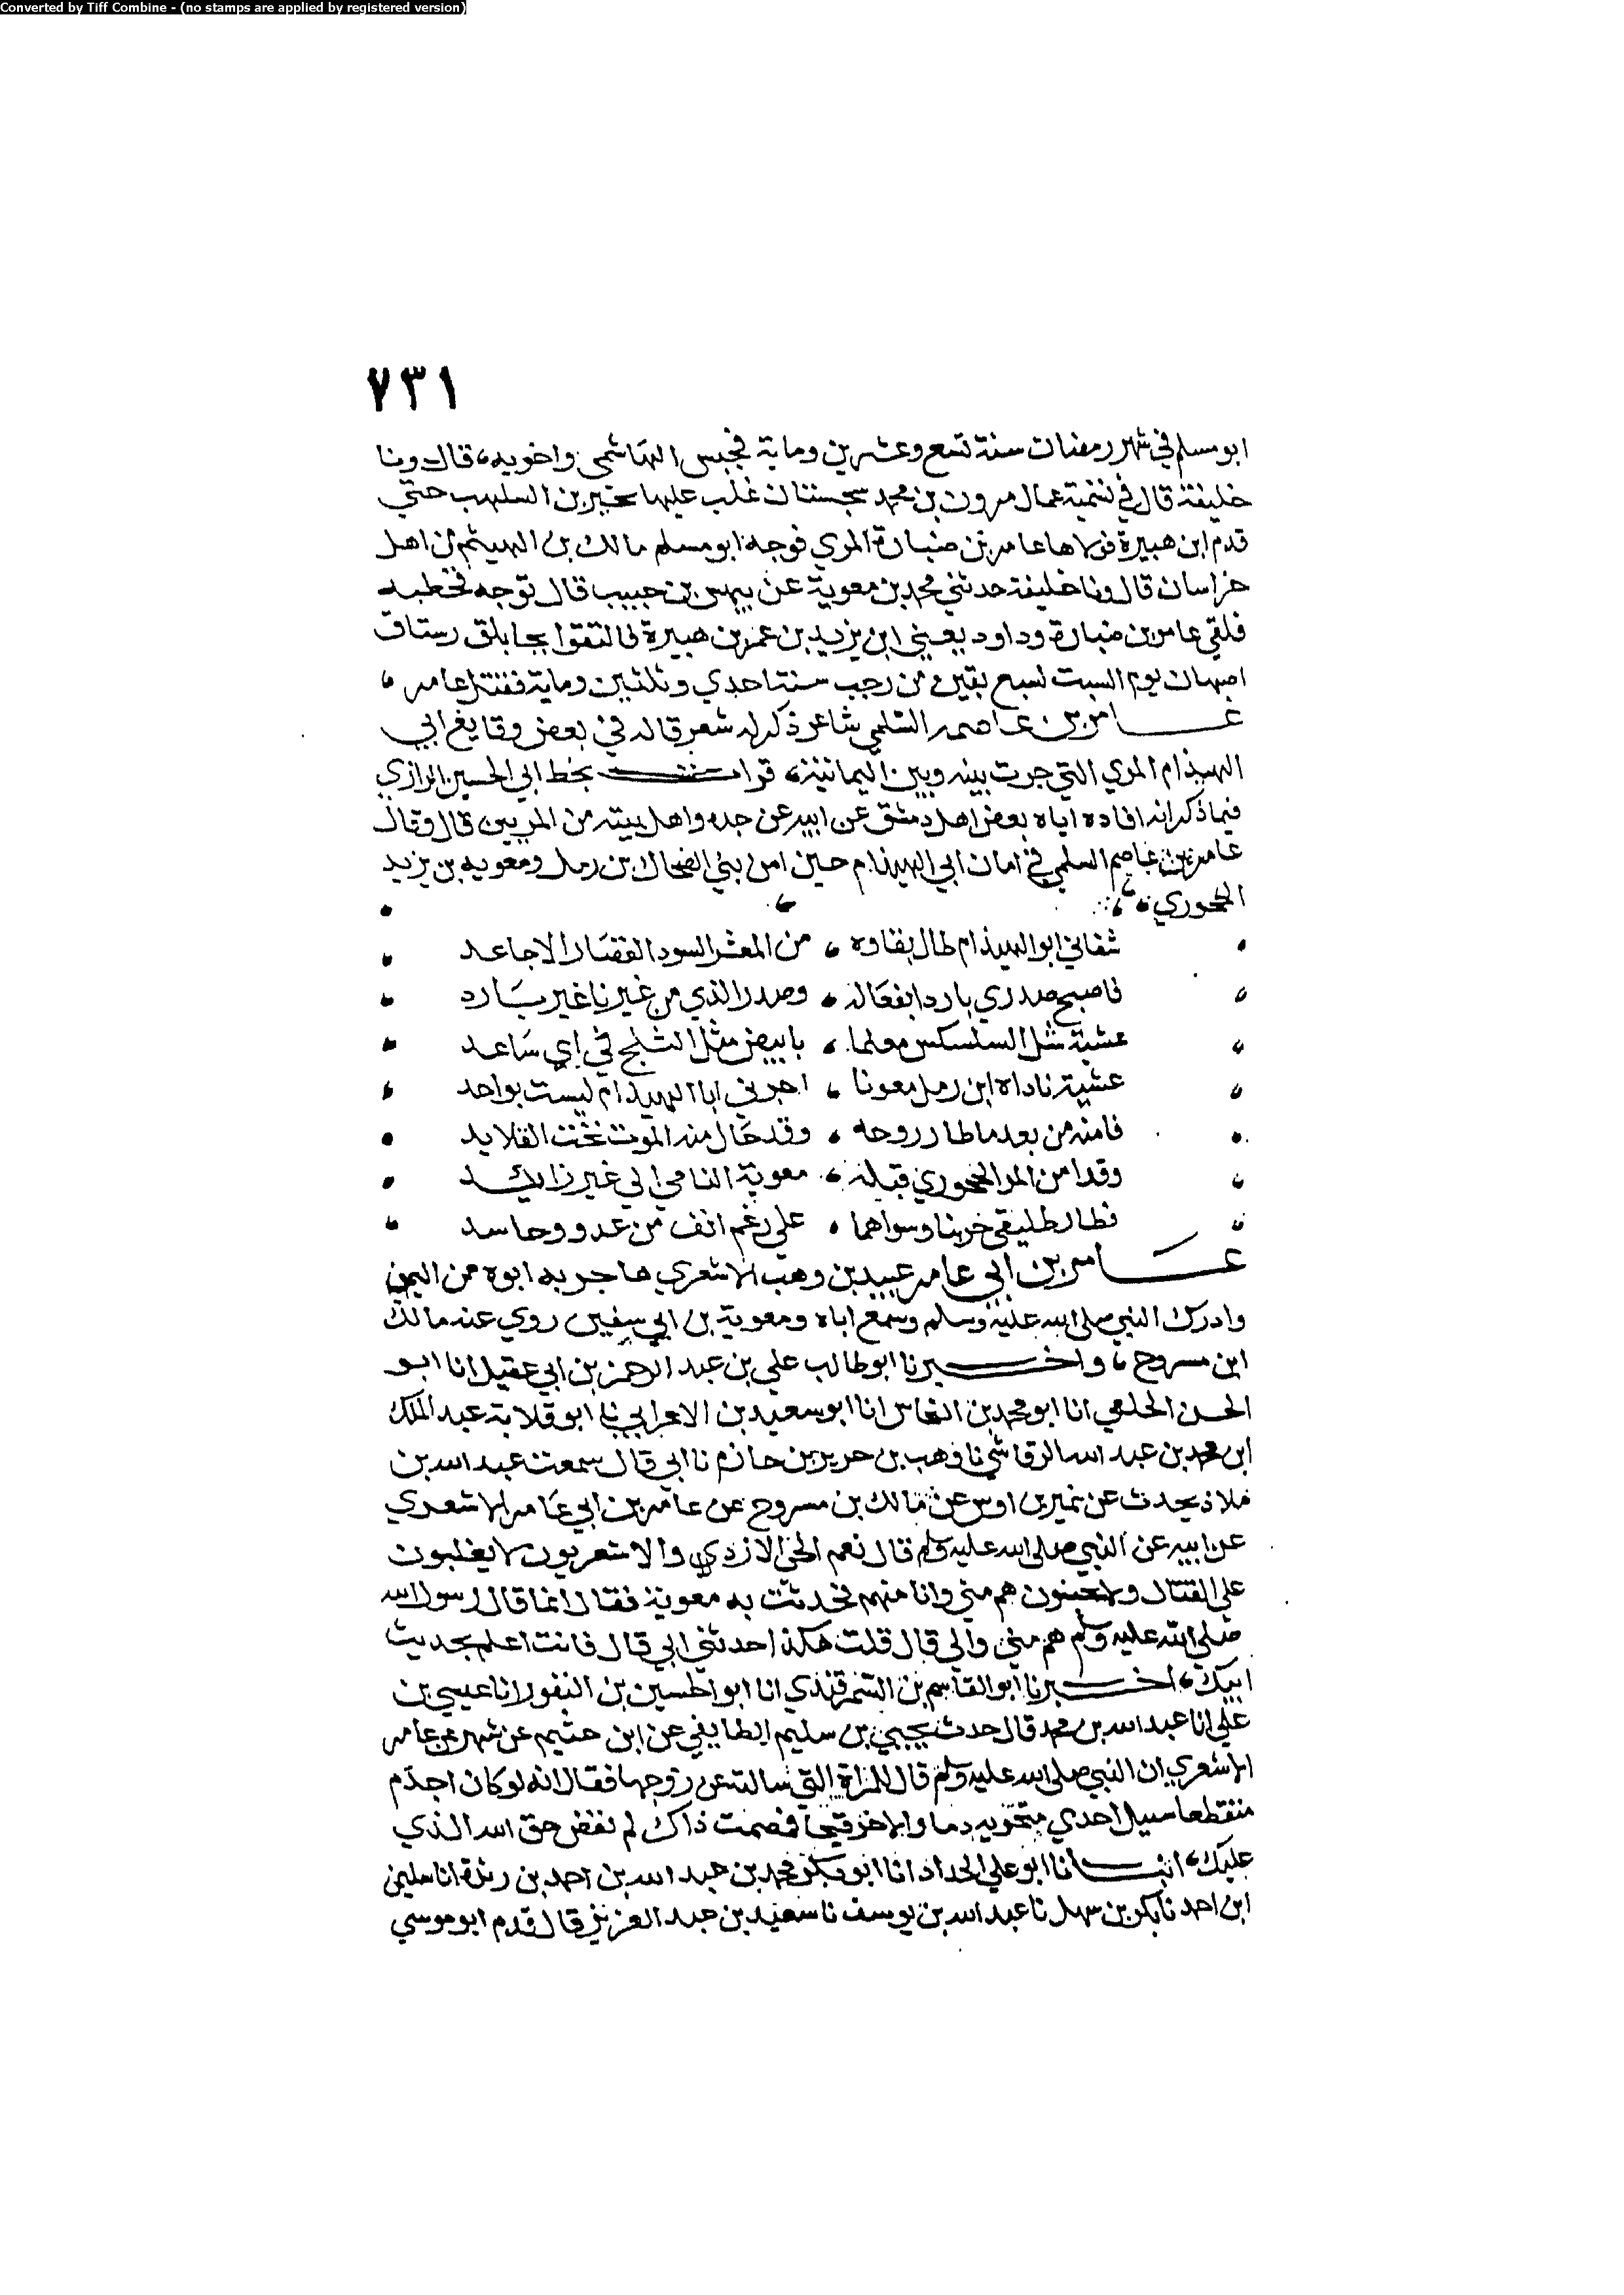 Converted by Tiff Combine - (no stamps are applied by registered version)
٧٣١
ابو مسلم في شهر رمضان سنة تسع وعشرين وماية فحبس الهاشمي واخويه، قال ونا
خليفة قال في تسمية عمال مرون بن محمد سجستان غلب عليها بن السلهب حتي
قدم ابن هبيرة فولاها عامر بن ضبارة المري فوجه ابو مسلم مالك بن الهيثم من اهل
خراسان قال ونا خليفة حدثني محمد بن معوية عن بيهس بن حبيب قال توجه قحطبه
فلقي عامر بن ضبارة وداود يعني ابن يزيد بن عمر بن هبيرة فالتقوا بجابلق رستاق
اصبهان يوم السبت لسبع بقين من رجب سنة احدي وثلثين وماية فقتل عامر،
عامر بن عاصم السلمي شاعر ذكر له شعر قاله في بعض وقايع ابي
الهيذام المري التي جرت بينه وبين اليمانية، قرات بخط ابي الحسين الرازي
فيما ذكر انه افاده اياه بعض اهل دمشق عن ابيه عن جده واهل بيته من المريين قال وقال
عامر بن عاصم السلمي في امان ابي الهيذام حين امن بني الضحاك بن رمل ومعويه بن يزيد
شفاني ابو الهيذام طال بقاوه ، من المعشر السود القصار الاجاعد
فاصبح صدري باردا بفعاله ، وصدر الذي من غيرنا غير بارد
عشية شل السكسكي معلما ، بابيض مثل الثلج في اي ساعد
عشية ناداه ابن رمل معونا ، اجرني ابا الهيذام ليست بواحد
فامنه من بعد ما طار روحه ، وقد حال منه الموت تحت القلايد
وقد امن المر قبله ، معوية النامي الي غير زايد
فطال طليقي خربنا وسواهما ، علي رغم انف من عدو وحاسد
عامر بن ابي عامر عبيد بن وهب الاشعري هاجر به ابوه من اليمن
وادرك النبي صلى الله عليه وسلم وسمع اباه ومعوية بن ابي سفين روي عنه مالك
ابن مسروح ، واخبرنا ابو طالب علي بن عبد الرحمن بن ابي عقيل انا ابو
الحسن الخلعي انا ابو محمد بن النحاس انا ابو سعيد بن الاعرابي نا ابو قلابة عبد الملك
ابن محمد بن عبد الله الرقاشي نا وهب بن جرير بن حازم نا ابي قال سمعت عبد الله بن
ملاذ يحدث عن نمير بن اوس عن مالك بن مسروح عن عامر بن ابي عامر الاشعري
عن ابيه عن النبي صلى الله عليه وسلم قال نعم الحي الازدي والاشعريون لا يغلبون
علي القتال ولا يجبنون هم مني وانا منهم فحدثت به معوية فقال انما قال رسول الله
صلى الله عليه وسلم هم مني والي قال قلت هكذا حدثني ابي قال فانت اعلم بحديث
ابيك ، اخبرنا ابو القاسم بن السمرقندي انا ابو الحسين بن النقور انا عيسي بن
علي انا عبد الله بن محمد قال حدث يحيي بن سليم الطايفي عن ابن خثيم عن شهر عن عامر
الاشعري ان النبي صلى الله عليه وسلم قال للمراة التي سالته عن زوجها فقال انه لو كان اجذم
متقطعا سيل احدي منخريه دما والاخر قيحا فمصت ذاك لم تقض حق الله الذي
عليك ، انبانا ابو علي الحداد انا ابو بكر محمد بن عبد الله بن احمد بن ريذة انا سليمن
ابن احمد نا بكر بن سهل نا عبد الله بن يوسف نا سعيد بن عبد العزيز قال قدم ابو موسي